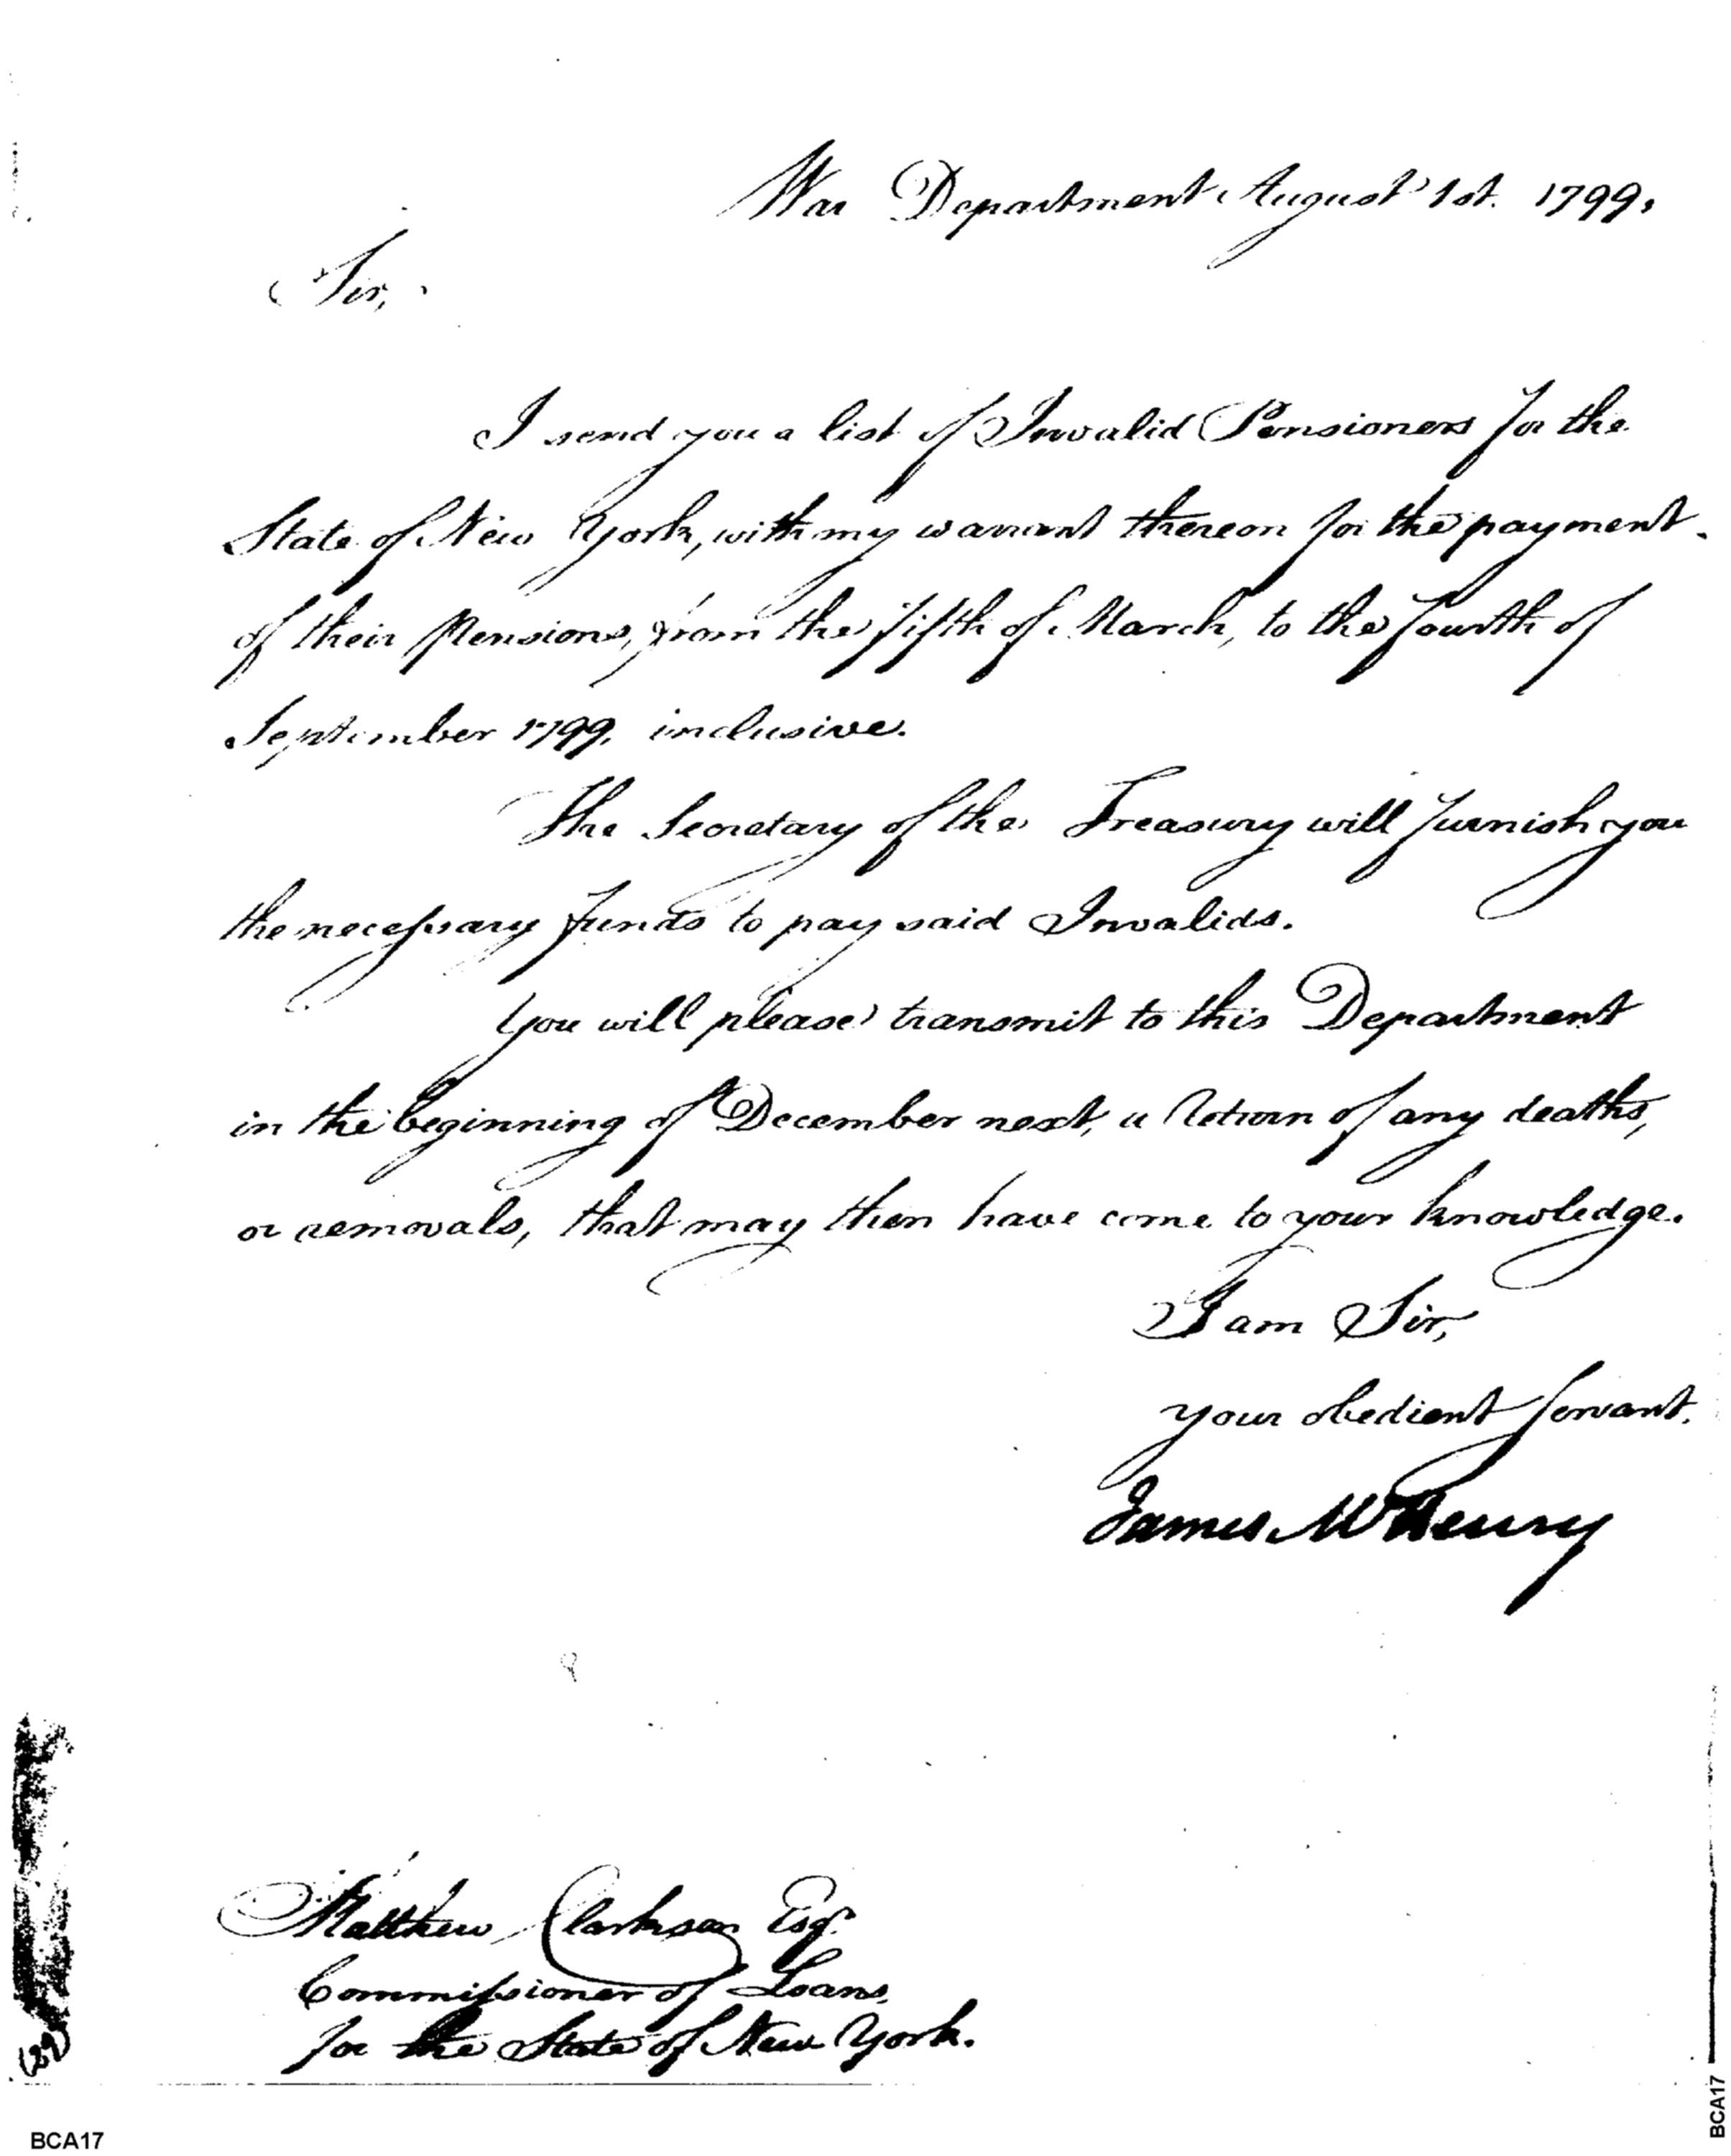 War Department August 1st. 1799.
Sir,
I send you a list of Invalid Pensioners for the
State of New York, with my warrant thereon for the payment
of their Pensions, from the fifth of March, to the fourth of
September 1799, inclusive.
The Secretary of the Treasury will furnish you
the necessary funds to pay said Invalids.
You will please transmit to this Department
in the beginning of December next, a Return of any deaths,
or removals, that may then have come to your knowledge.
I am Sir,
your obedient servant.
James McHenry
Matthew Clarkson Esqr.
Commissioner of Loans,
for the State of New York.
BCA17
BCA17